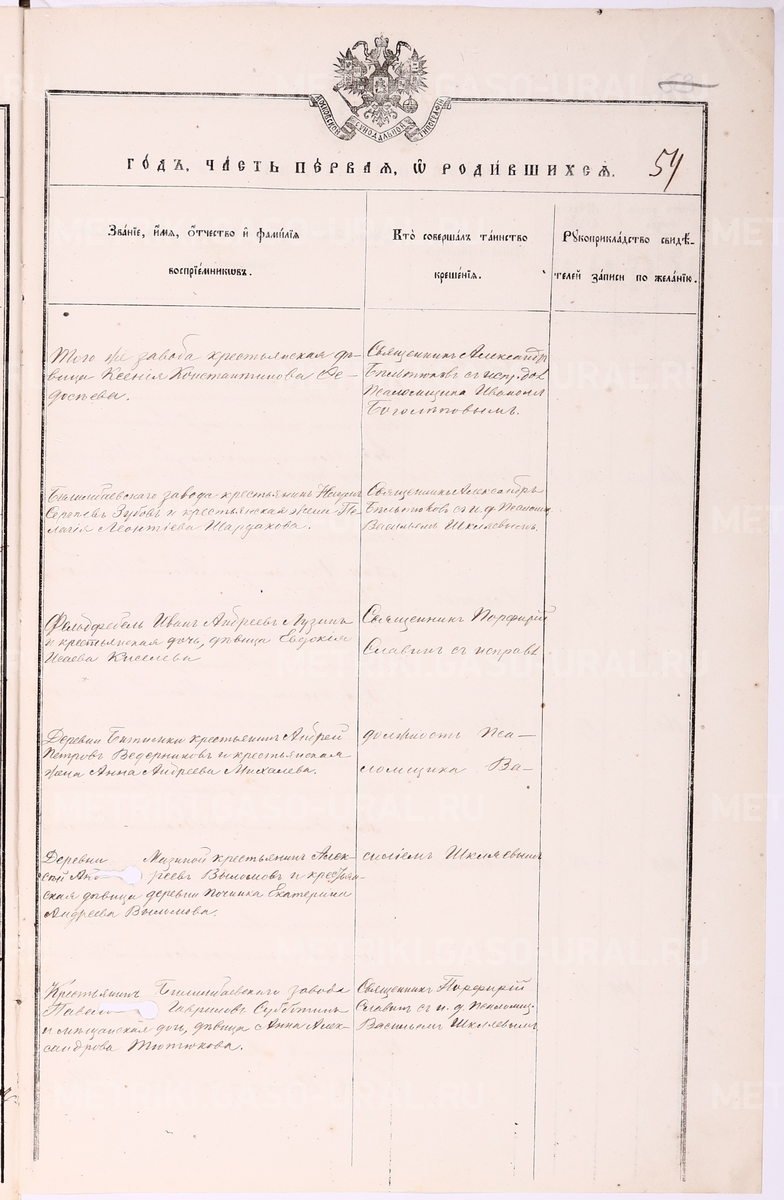 МОСКОВСКОЙ СѴНОДАЛЬНОЙ ТИПОГРАФІИ
ГО́ДЪ, ЧА́СТЬ ПЕ́РВАЯ, Ѽ РОДИ́ВШИХСѦ.
54
Зва́нїе, и҆́мѧ, ѻ҆́тчество и҆ фамѝлїѧ
воспрїе́мникѡвъ.
Кто̀ соверша́лъ та́инство
креще́нїѧ.
Рꙋкоприкла́дство свидѣ́-
телей за́писи по жела́нїю.
Того же завода крестьянская дѣ-
вица Ксенія Константинова Ѳе-
досѣева.
Священникъ Александръ
съ испр. дол.
Псаломщика Иваномъ
Боголѣповымъ.
Билимбаевскаго завода крестьянинъ
Зубовъ и крестьянская жена Пе-
лагія Леонтіева Шардакова.
Священникъ Александръ
съ и. д. Псаломщ.
Васильемъ Шкляевымъ.
Фельдфебель Иванъ Андреевъ Лузинъ
и крестьянская дочь, дѣвица Евдокія
Исаева Киселева
Священникъ Порфирій
Славинъ съ исправ.
Деревни крестьянинъ Андрей
Петровъ Ведерниковъ и крестьянская
жена Анна Андреева Михалева.
должность Пса-
ломщика Ва-
Деревни Мазиной крестьянинъ Алек-
сѣй Ан реевъ Выломовъ и крестьян-
ская дѣвица деревни Починка Екатерина
Андреева Выломова.
силіемъ Шкляевымъ
Крестьянинъ Билимбаевскаго завода
Павелъ Гавриловъ Субботинъ
и мѣщанская дочь, дѣвица Анна Алек-
сандрова Тютюкова.
Священникъ Порфирій
Славинъ съ и. д. Псаломщ.
Васильемъ Шкляевымъ
METRIKI.GASO-URAL.RU